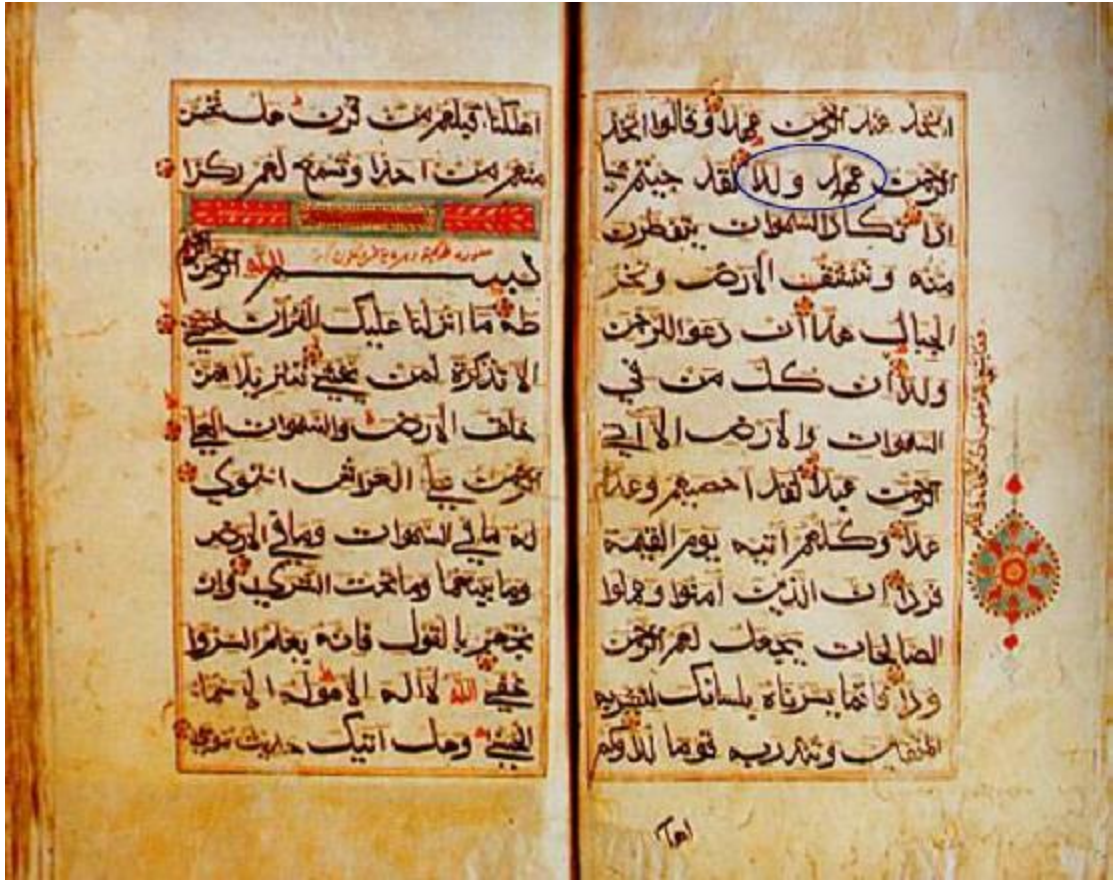 اتخذ عند الرحمن عهدا وقالوا اتخذ
الرحمن عهدا ولدا لقد جيتم شيا
ادا تكاد السموات يتفطرن
منه وتنشق الارض وتخر
الجبال هدا ان دعوا للرحمن
ولدا ان كل من في
السموات والارض الا اتي
الرحمن عبدا لقد احصيهم وعدهم
عدا وكلهم اتيه يوم القيمة
فردا ان الذين امنوا وعملوا
الصالحات سيجعل لهم الرحمن
ودا فانما يسرناه بلسانك لتبشر به
المتقين وتنذر به قوما لدا وكم
اهلكنا قبلهم من قرن هل تحس
منهم من احد او تسمع لهم ركزا
بسم الله الرحمن الرحيم
طه ما انزلنا عليك القران لتشقي
الا تذكرة لمن يخشي تنزيلا ممن
خلق الارض والسموات العلي
الرحمن علي العرش استوي
له ما في السموات وما في الارض
وما بينهما وما تحت الثري وان
تجهر بالقول فانه يعلم السر وا
خفي الله لا اله الا هو له الاسماء
الحسني وهل اتيك حديث موسي